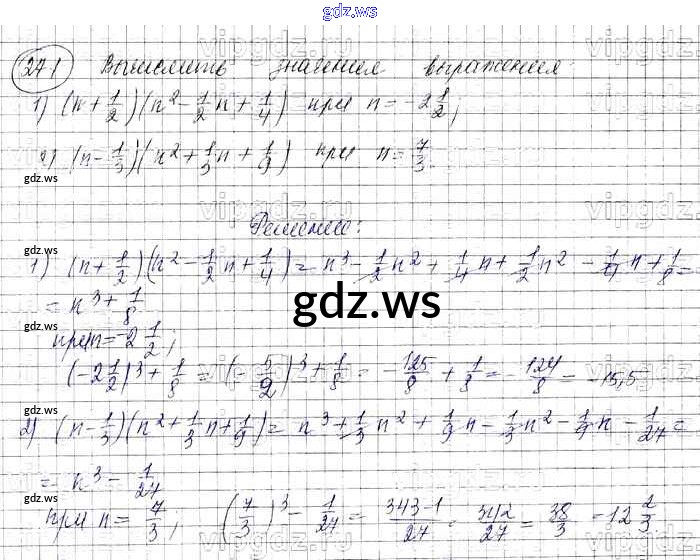 gdz.ws
271 Вычислить значения выражения
1) (n + 1/2)(n² - 1/2 n + 1/4) при n = -2 1/2;
2) (n - 1/3)(n² + 1/3 n + 1/9) при n = 7/3.
gdz.ws
vipgdz.ru
Решение:
gdz.ws
1) (n + 1/2)(n² - 1/2 n + 1/4) = n³ - 1/2 n² + 1/4 n + 1/2 n² - 1/4 n + 1/8 =
= n³ + 1/8
gdz.ws
при n = -2 1/2;
(-2 1/2)³ + 1/8 = (-5/2)³ + 1/8 = -125/8 + 1/8 = -124/8 = -15,5
gdz.ws
2) (n - 1/3)(n² + 1/3 n + 1/9) = n³ + 1/3 n² + 1/9 n - 1/3 n² - 1/9 n - 1/27 =
= n³ - 1/27
при n = 7/3; (7/3)³ - 1/27 = 343-1/27 = 342/27 = 38/3 = 12 2/3.
gdz.ws